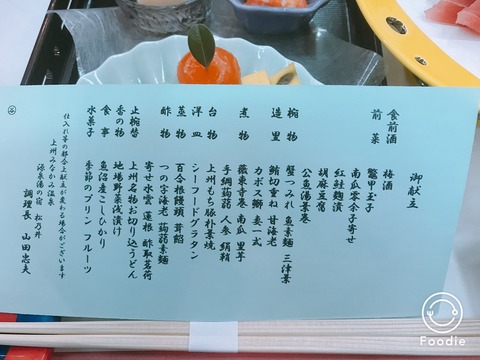 御献立
食前酒 梅酒
前菜 鼈甲玉子
南瓜零余子寄せ
紅鮭麹漬
胡麻豆腐
公魚湯葉巻
椀物 蟹つみれ 魚素麺 三津葉
造里 鯖切重ね 甘海老
カボス鰤 妻一式
煮物 薇東寺巻 南瓜 里芋
手綱蒟蒻 人参 絹鞘
台物 上州もち豚朴葉焼
洋皿 シーフードグラタン
蒸物 百合根饅頭 茸餡
酢物 つの字海老 蒟蒻素麺
寄せ水雲 蓮根 酢取茗荷
止椀替 上州名物お切り込うどん
香の物 地場野菜浅漬け
食事 魚沼産こしひかり
水菓子 季節のプリン フルーツ
仕入れ等の都合上献立が変わる場合がございます
上州みなかみ温泉
源泉湯の宿 松乃井
調理長 山田忠夫
Foodie